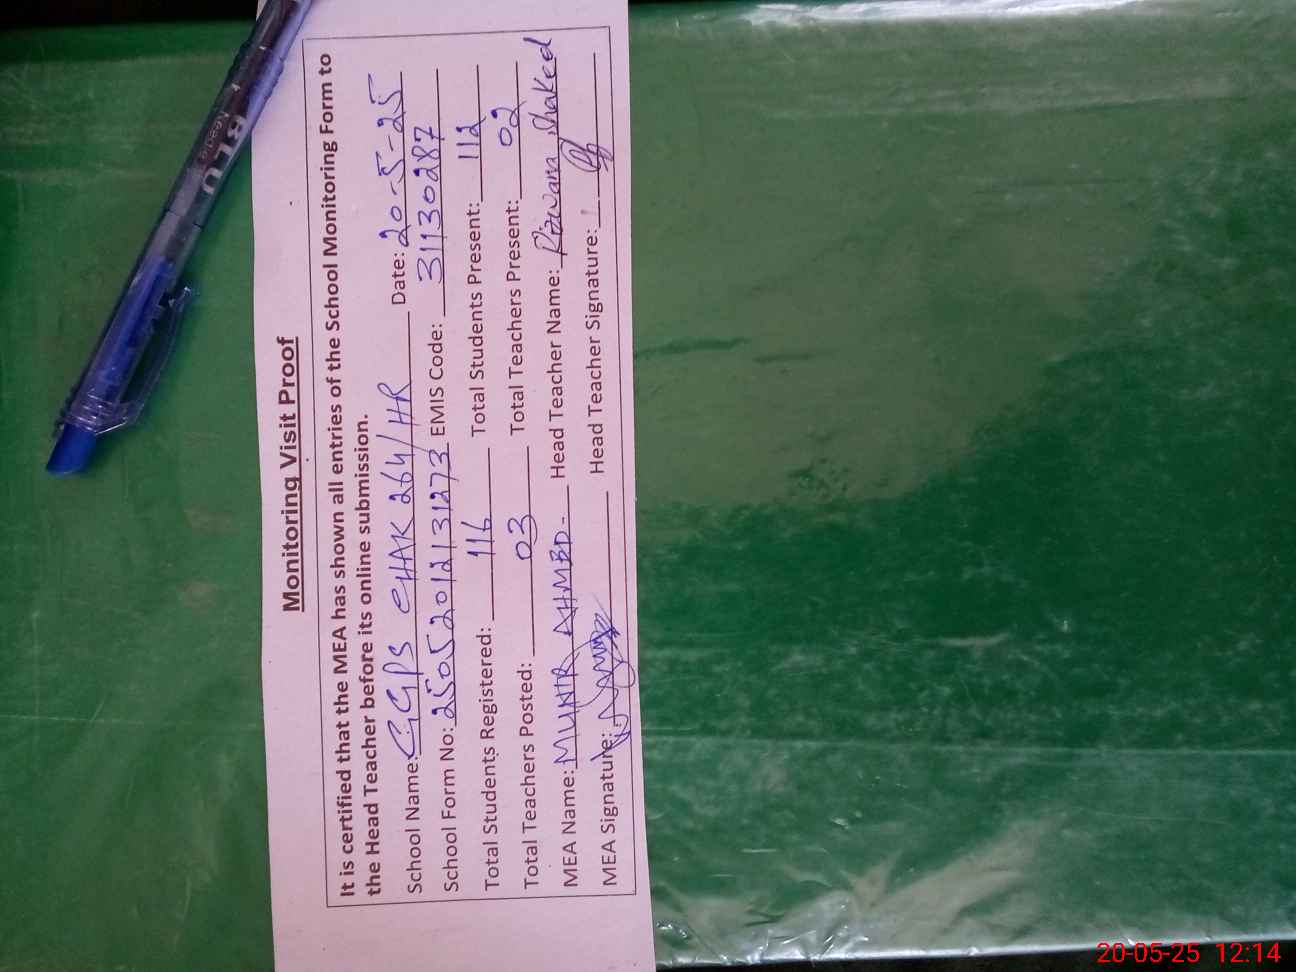 Monitoring Visit Proof
It is certified that the MEA has shown all entries of the School Monitoring Form to
the Head Teacher before its online submission.
School Name: GGPS CHAK 264/HR Date: 20-5-25
School Form No: 25052012131273 EMIS Code: 31130287
Total Students Registered: 116 Total Students Present: 112
Total Teachers Posted: 03 Total Teachers Present: 02
MEA Name: MUNIR AHMED- Head Teacher Name: Rizwana Shakeel
MEA Signature: Head Teacher Signature:
BLU
20-05-25 12:14